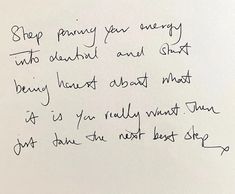 Stop pouring your energy
into denial and start
being honest about what
it is you really want. Then
just take the next best step x